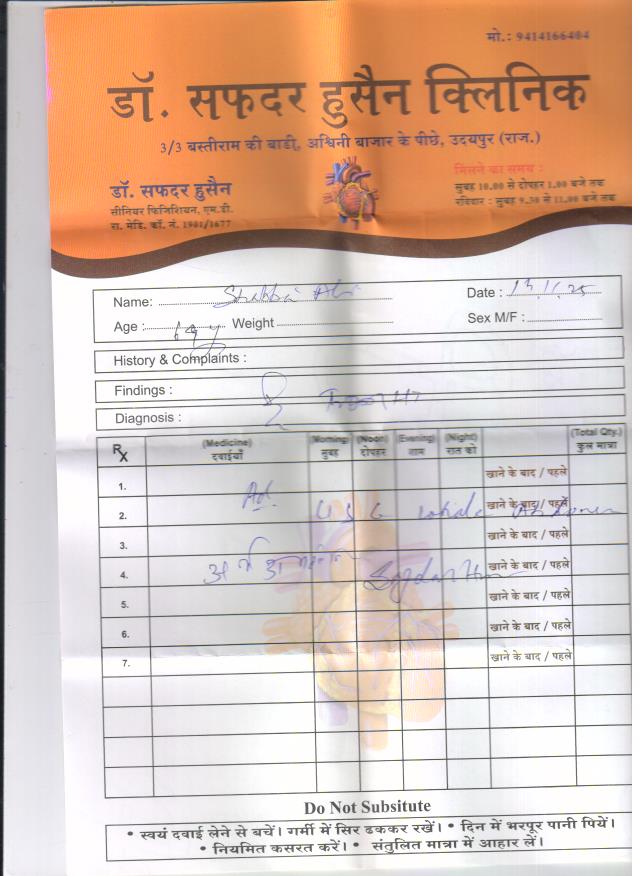 मो.: 9414166404
डॉ. सफदर हुसैन क्लिनिक
3/3 बस्तीराम की बाडी, अश्विनी बाजार के पीछे, उदयपुर (राज.)
डॉ. सफदर हुसैन
सीनियर फिजिशियन, एम.डी.
रा. मेडि. कॉ. नं. 1901/1677
मिलने का समय :
सुबह 10.00 से दोपहर 1.00 बजे तक
रविवार : सुबह 9.30 से 11.00 बजे तक
Name: Date : 13.11.25
Age : Weight Sex M/F :
History & Complaints :
Findings :
Diagnosis :
Rx (Medicine) (Morning) (Noon) (Evening) (Night) (Total Qty.)
दवाईयाँ सुबह दोपहर शाम रात को कुल मात्रा
1. खाने के बाद / पहले
2. Ad. U S G whole Abdomen खाने के बाद / पहले
3. खाने के बाद / पहले
4. खाने के बाद / पहले
5. खाने के बाद / पहले
6. खाने के बाद / पहले
7. खाने के बाद / पहले
Do Not Subsitute
• स्वयं दवाई लेने से बचें। गर्मी में सिर ढककर रखें। • दिन में भरपूर पानी पियें।
• नियमित कसरत करें। • संतुलित मात्रा में आहार लें।